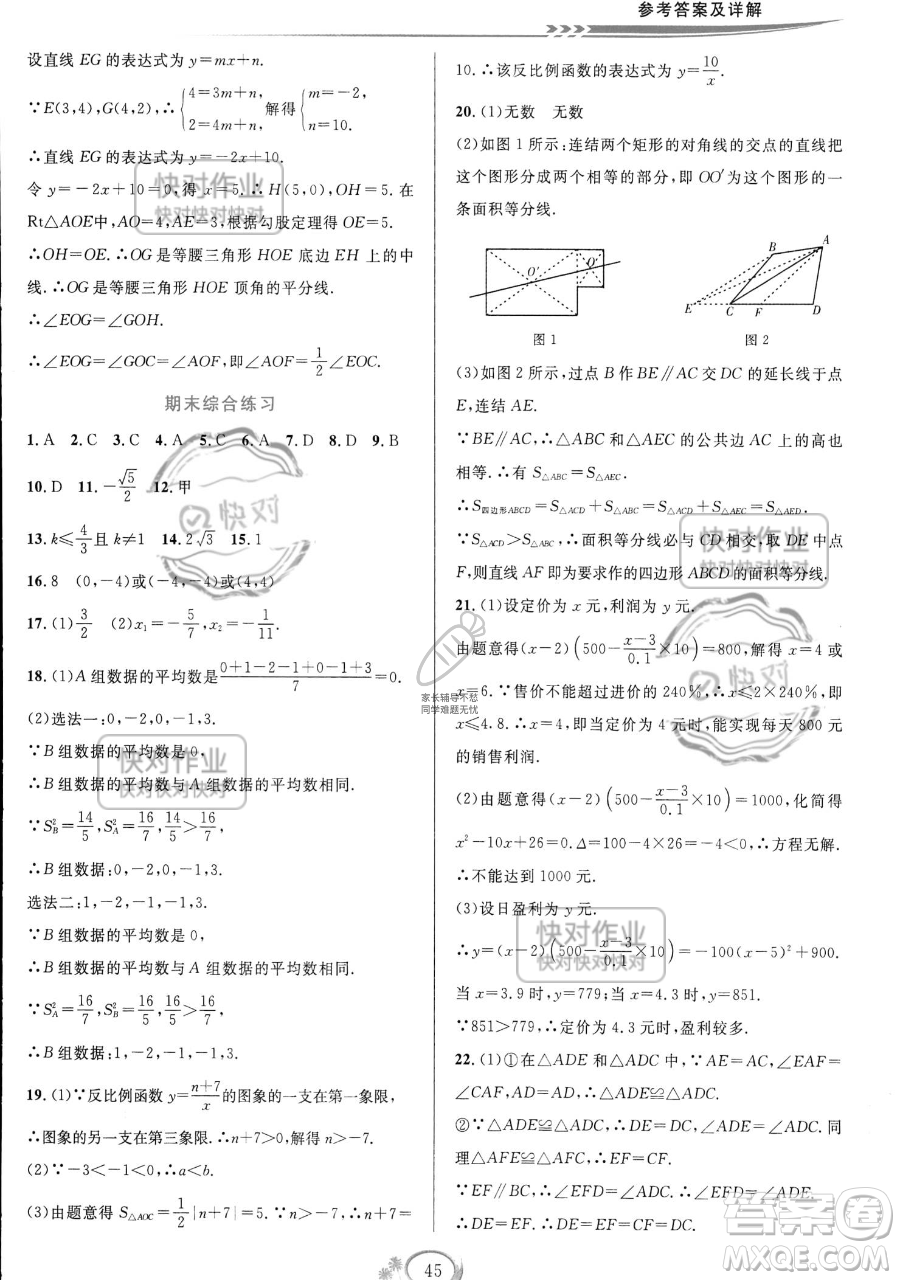 参考答案及详解
设直线 EG 的表达式为 y=mx+n.
∵E(3,4),G(4,2),∴{4=3m+n, 2=4m+n, 解得{m=-2, n=10.
∴直线 EG 的表达式为 y=-2x+10.
令 y=-2x+10=0,得 x=5.∴H(5,0),OH=5.在
Rt△AOE中,AO=4,AE=3,根据勾股定理得 OE=5.
∴OH=OE.∴OG 是等腰三角形 HOE 底边 EH 上的中
线.∴OG 是等腰三角形 HOE 顶角的平分线.
∴∠EOG=∠GOH.
∴∠EOG=∠GOC=∠AOF,即∠AOF=1/2∠EOC.
期末综合练习
1.A 2.C 3.C 4.A 5.C 6.A 7.D 8.D 9.B
10.D 11.-√5/2 12.甲
13.k≤4/3且 k≠1 14.2√3 15.1
16.8 (0,-4)或(4,-4)或(4,4)
17.(1)3/2 (2)x₁=-5/7,x₂=-1/11.
18.(1)A 组数据的平均数是(0+1-2-1+0-1+3)/7=0.
(2)选法一:0,-2,0,-1,3.
∵B 组数据的平均数是 0,
∴B 组数据的平均数与 A 组数据的平均数相同.
∵S²_B=14/5,S²_A=16/7,14/5>16/7,
∴B 组数据:0,-2,0,-1,3.
选法二:1,-2,-1,-1,3.
∵B 组数据的平均数是 0,
∴B 组数据的平均数与 A 组数据的平均数相同.
∵S²_A=16/7,S²_B=16/5,16/5>16/7,
∴B 组数据:1,-2,-1,-1,3.
19.(1)∵反比例函数 y=(n+7)/x的图象的一支在第一象限,
∴图象的另一支在第三象限.∴n+7>0,解得 n>-7.
(2)∵-3<-1<0,∴a<b.
(3)由题意得 S△AOC=1/2|n+7|=5.∵n>-7,∴n+7=
10.∴该反比例函数的表达式为 y=10/x.
20.(1)无数 无数
(2)如图 1 所示:连结两个矩形的对角线的交点的直线把
这个图形分成两个相等的部分,即 OO′为这个图形的一
条面积等分线.
O′ O′
B A
E C F D
图 1 图 2
(3)如图 2 所示,过点 B 作 BE∥AC 交 DC 的延长线于点
E,连结 AE.
∵BE∥AC,∴△ABC 和△AEC 的公共边 AC 上的高也
相等.∴有 S△ABC=S△AEC.
∴S四边形ABCD=S△ACD+S△ABC=S△ACD+S△AEC=S△AED.
∵S△ACD>S△ABC,∴面积等分线必与 CD 相交,取 DE 中点
F,则直线 AF 即为要求作的四边形 ABCD 的面积等分线.
21.(1)设定价为 x 元,利润为 y 元.
由题意得(x-2)(500-(x-3)/0.1×10)=800,解得 x=4 或
x=6.∵售价不能超过进价的 240%,∴x≤2×240%,即
x≤4.8.∴x=4,即当定价为 4 元时,能实现每天 800 元
的销售利润.
(2)由题意得(x-2)(500-(x-3)/0.1×10)=1000,化简得
x²-10x+26=0.Δ=100-4×26=-4<0,∴方程无解.
∴不能达到 1000 元.
(3)设日盈利为 y 元.
∴y=(x-2)(500-(x-3)/0.1×10)=-100(x-5)²+900.
当 x=3.9 时,y=779;当 x=4.3 时,y=851.
∵851>779,∴定价为 4.3 元时,盈利较多.
22.(1)①在△ADE 和△ADC 中,∵AE=AC,∠EAF=
∠CAF,AD=AD,∴△ADE≌△ADC.
②∵△ADE≌△ADC,∴DE=DC,∠ADE=∠ADC.同
理△AFE≌△AFC,∴EF=CF.
∵EF∥BC,∴∠EFD=∠ADC.∴∠EFD=∠ADE.
∴DE=EF.∴DE=EF=CF=DC.
45
快对作业
快对快对快对
快对
家长辅导不愁
同学难题无忧
快对作业
快对快对快对
快对作业
快对快对快对
快对
快对作业
快对快对快对
答案圈
MXQE.COM